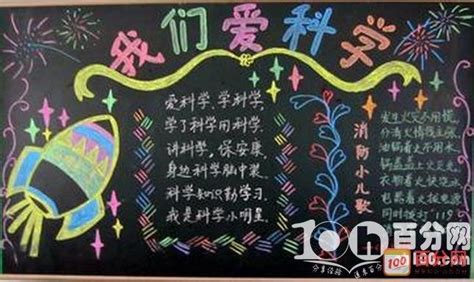 我们爱科学
爱科学,学科学,
学了科学用科学.
讲科学,保安康,
身边科学脑中装.
科学知识勤学习,
我是科学小明星.
消防小儿歌
发生火灾不用慌,
分清火情
油锅着火不用水,
锅盖盖上火
衣服着火快
电器着火 电源
同时拨打119
100百分网
100.com